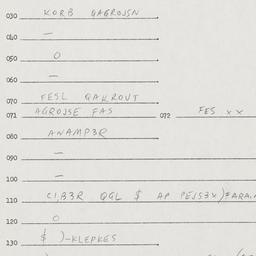 030 KORB GAGROJSN
040 —
050 O
060 —
070 FESL GAKROUT
071 AGROJSE FAS 072 FES x x
080 ANAMP3R
090 —
100 —
110 QGL $ AP
120 O
130 $ )-KLEPKES